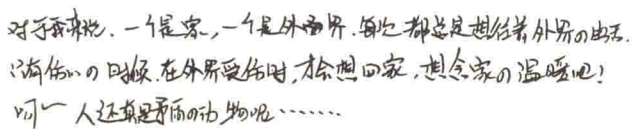 对于我来说.一个是家,一个是外面界.每次都总是想往着外界の生活.
只有伤心の时候.在外界受伤时,才会想回家,想念家の温暖吧!
呵~ 人还真是矛盾の动物呢……